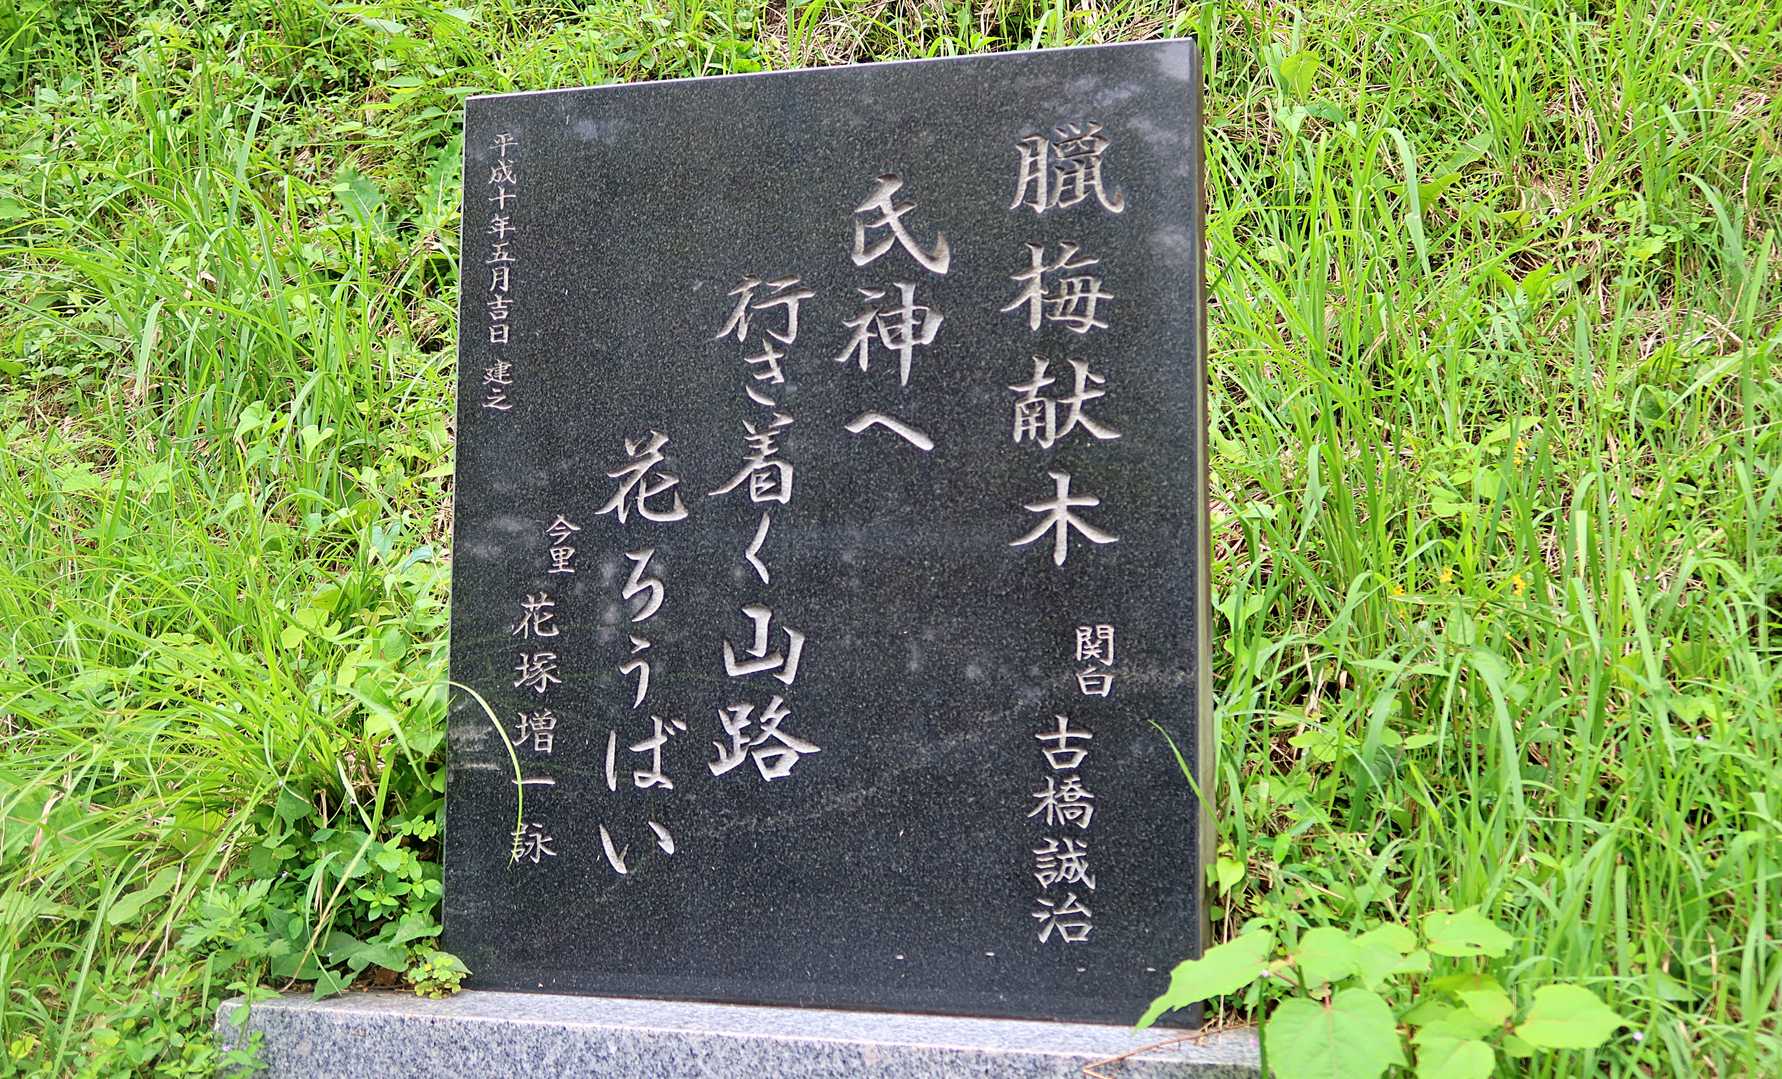 臘梅献木 関白 古橋誠治
氏神へ
行き着く山路
花ろうばい
今里 花塚増一 詠
平成十年五月吉日 建之